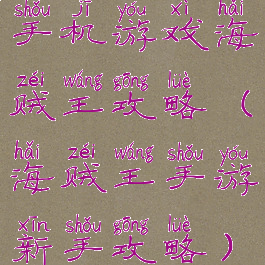 shǒu jī yóu xì hǎi
手机游戏海
zéi wáng gōng lüè
贼王攻略（
hǎi zéi wáng shǒu yóu
海贼王手游
xīn shǒu gōng lüè
新手攻略）